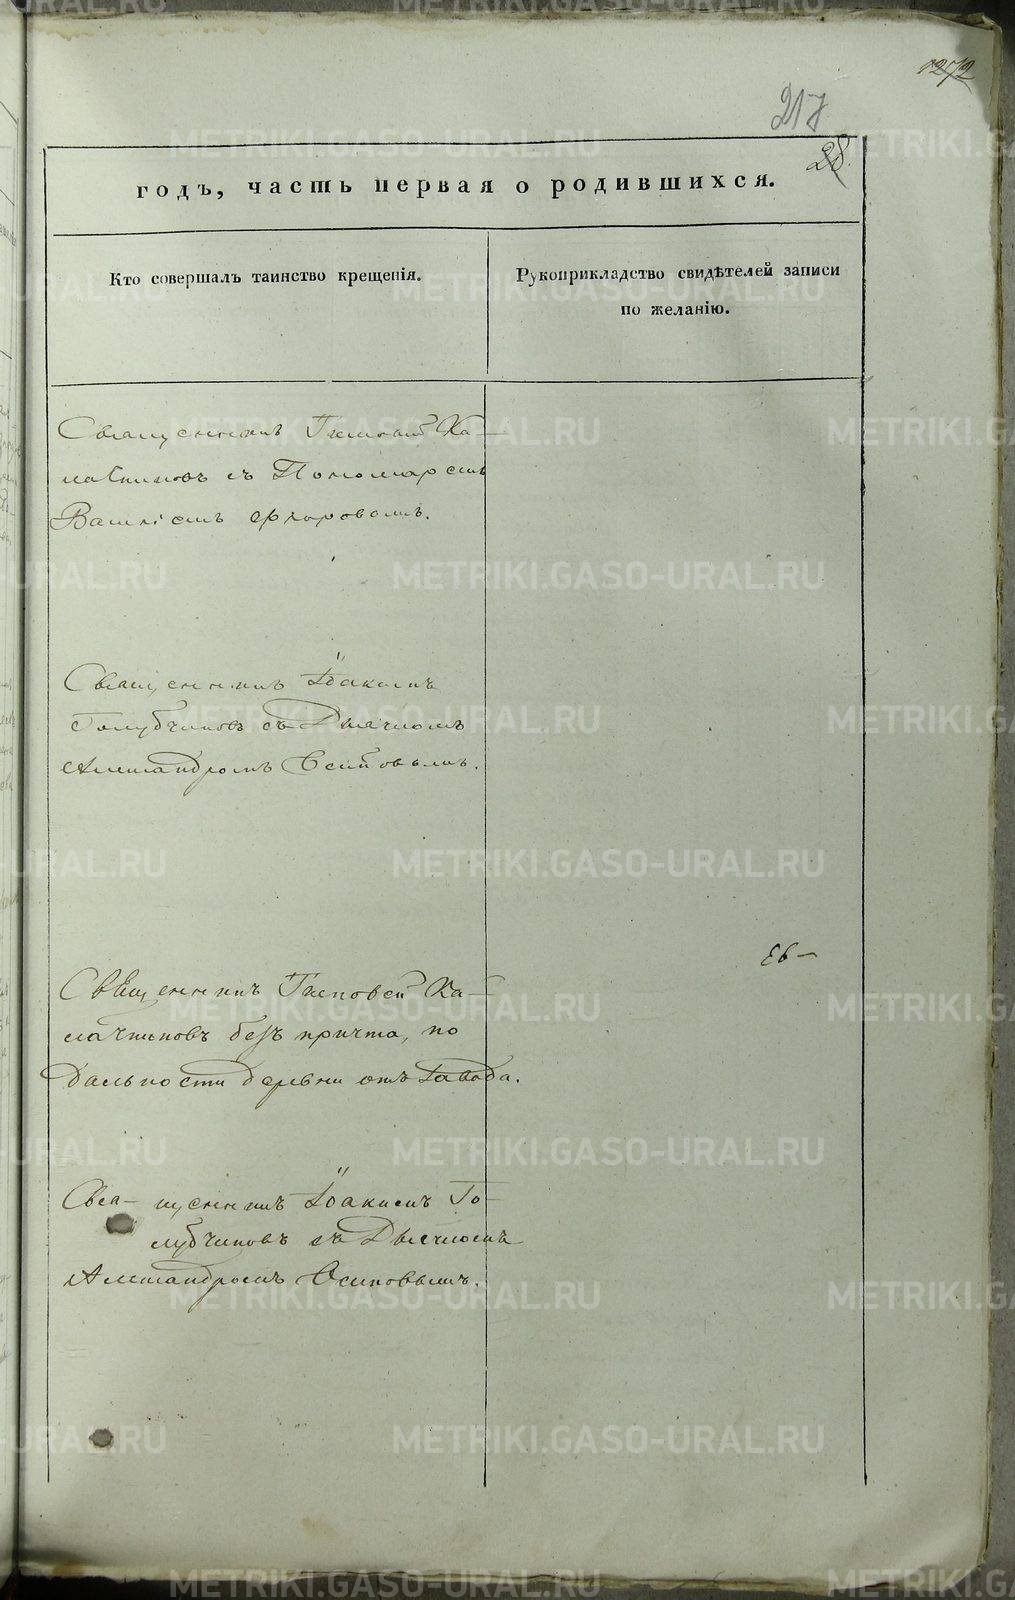 1272
217
28.
годъ, часть первая о родившихся.
Кто совершалъ таинство крещенія.
Рукоприкладство свидѣтелей записи
по желанію.
Священникъ Ка-
съ Пономаремъ
Священникъ Іоакимъ
Голубчиковъ съ Дьячкомъ
Александромъ Осиповымъ.
Священникъ Ка-
безъ причта, по
дальности деревни отъ Завода.
Свя- щенникъ Іоакимъ Го-
лубчиковъ съ Дьячкомъ
Александромъ Осиповымъ.
METRIKI.GASO-URAL.RU